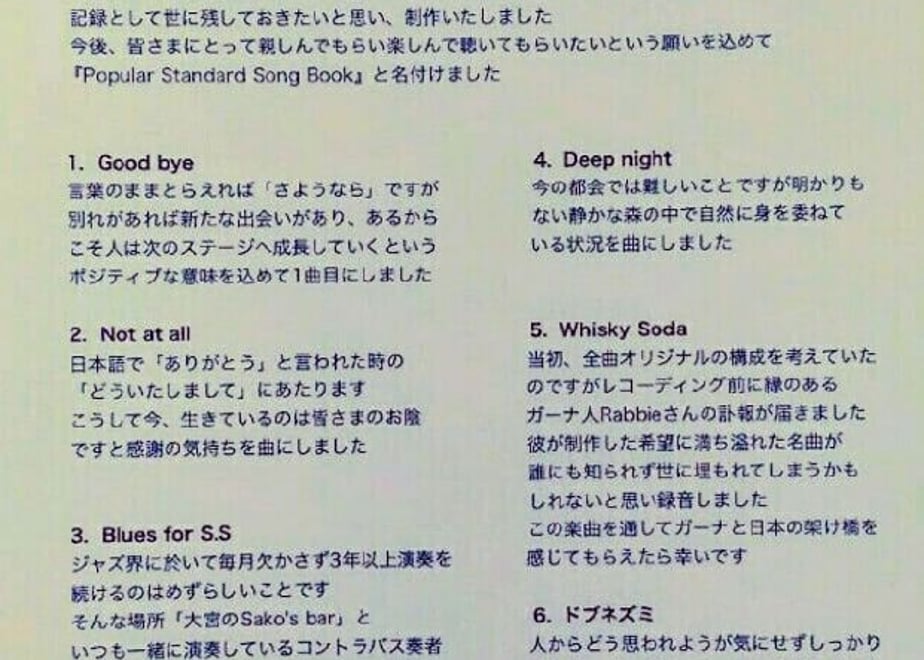 記録として世に残しておきたいと思い、制作いたしました
今後、皆さまにとって親しんでもらい楽しんで聴いてもらいたいという願いを込めて
『Popular Standard Song Book』と名付けました
1. Good bye
言葉のままとらえれば「さようなら」ですが
別れがあれば新たな出会いがあり、あるから
こそ人は次のステージへ成長していくという
ポジティブな意味を込めて1曲目にしました
2. Not at all
日本語で「ありがとう」と言われた時の
「どういたしまして」にあたります
こうして今、生きているのは皆さまのお陰
ですと感謝の気持ちを曲にしました
3. Blues for S.S
ジャズ界に於いて毎月欠かさず3年以上演奏を
続けるのはめずらしいことです
そんな場所「大宮のSako's bar」と
いつも一緒に演奏しているコントラバス奏者
4. Deep night
今の都会では難しいことですが明かりも
ない静かな森の中で自然に身を委ねて
いる状況を曲にしました
5. Whisky Soda
当初、全曲オリジナルの構成を考えていた
のですがレコーディング前に縁のある
ガーナ人Rabbieさんの訃報が届きました
彼が制作した希望に満ち溢れた名曲が
誰にも知られず世に埋もれてしまうかも
しれないと思い録音しました
この楽曲を通してガーナと日本の架け橋を
感じてもらえたら幸いです
6. ドブネズミ
人からどう思われようが気にせずしっかり